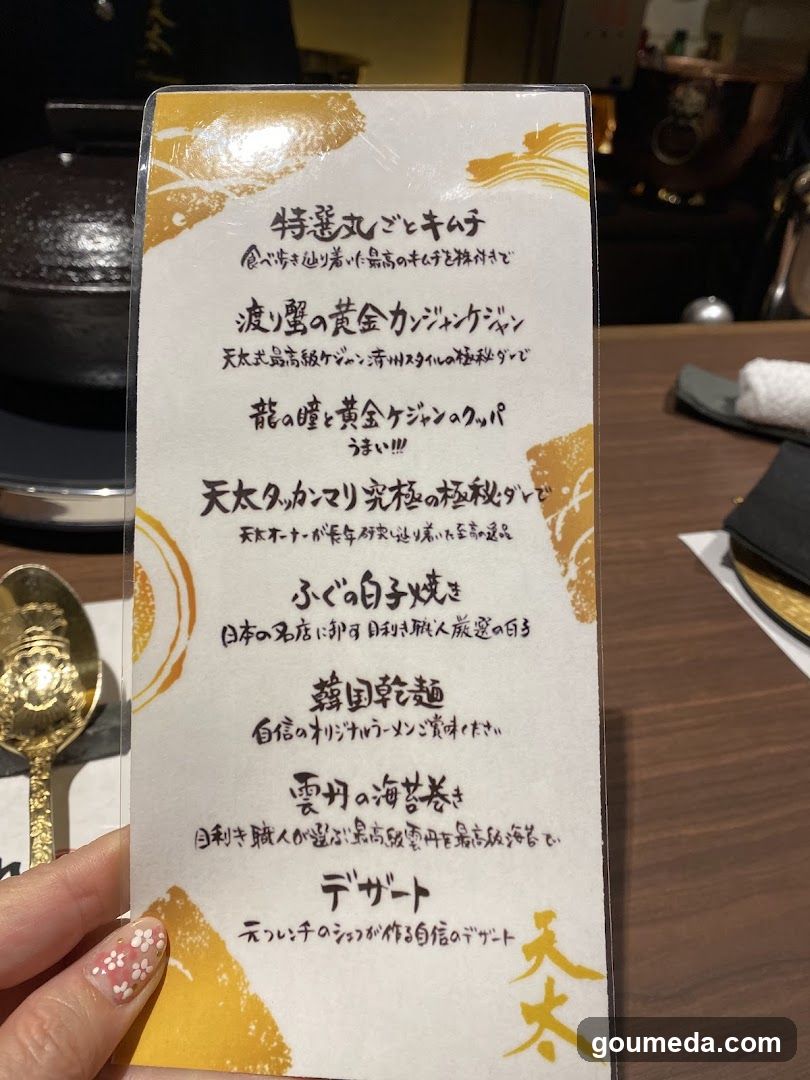 特選丸ごとキムチ
食べ歩き辿り着いた最高のキムチを株付きで
渡り蟹の黄金カンジャンケジャン
天太式最高級ケジャン済州スタイルの極秘ダレで
龍の瞳と黄金ケジャンのクッパ
うまい!!!
天太タッカンマリ究極の極秘ダレで
天太オーナーが長年研究し辿り着いた至高の逸品
ふぐの白子焼き
日本の名店に卸す目利き職人厳選の白子
韓国乾麺
自信のオリジナルラーメンご賞味ください
雲丹の海苔巻き
目利き職人が選ぶ最高級雲丹を最高級海苔で
デザート
元フレンチのシェフが作る自信のデザート
天太
goumeda.com